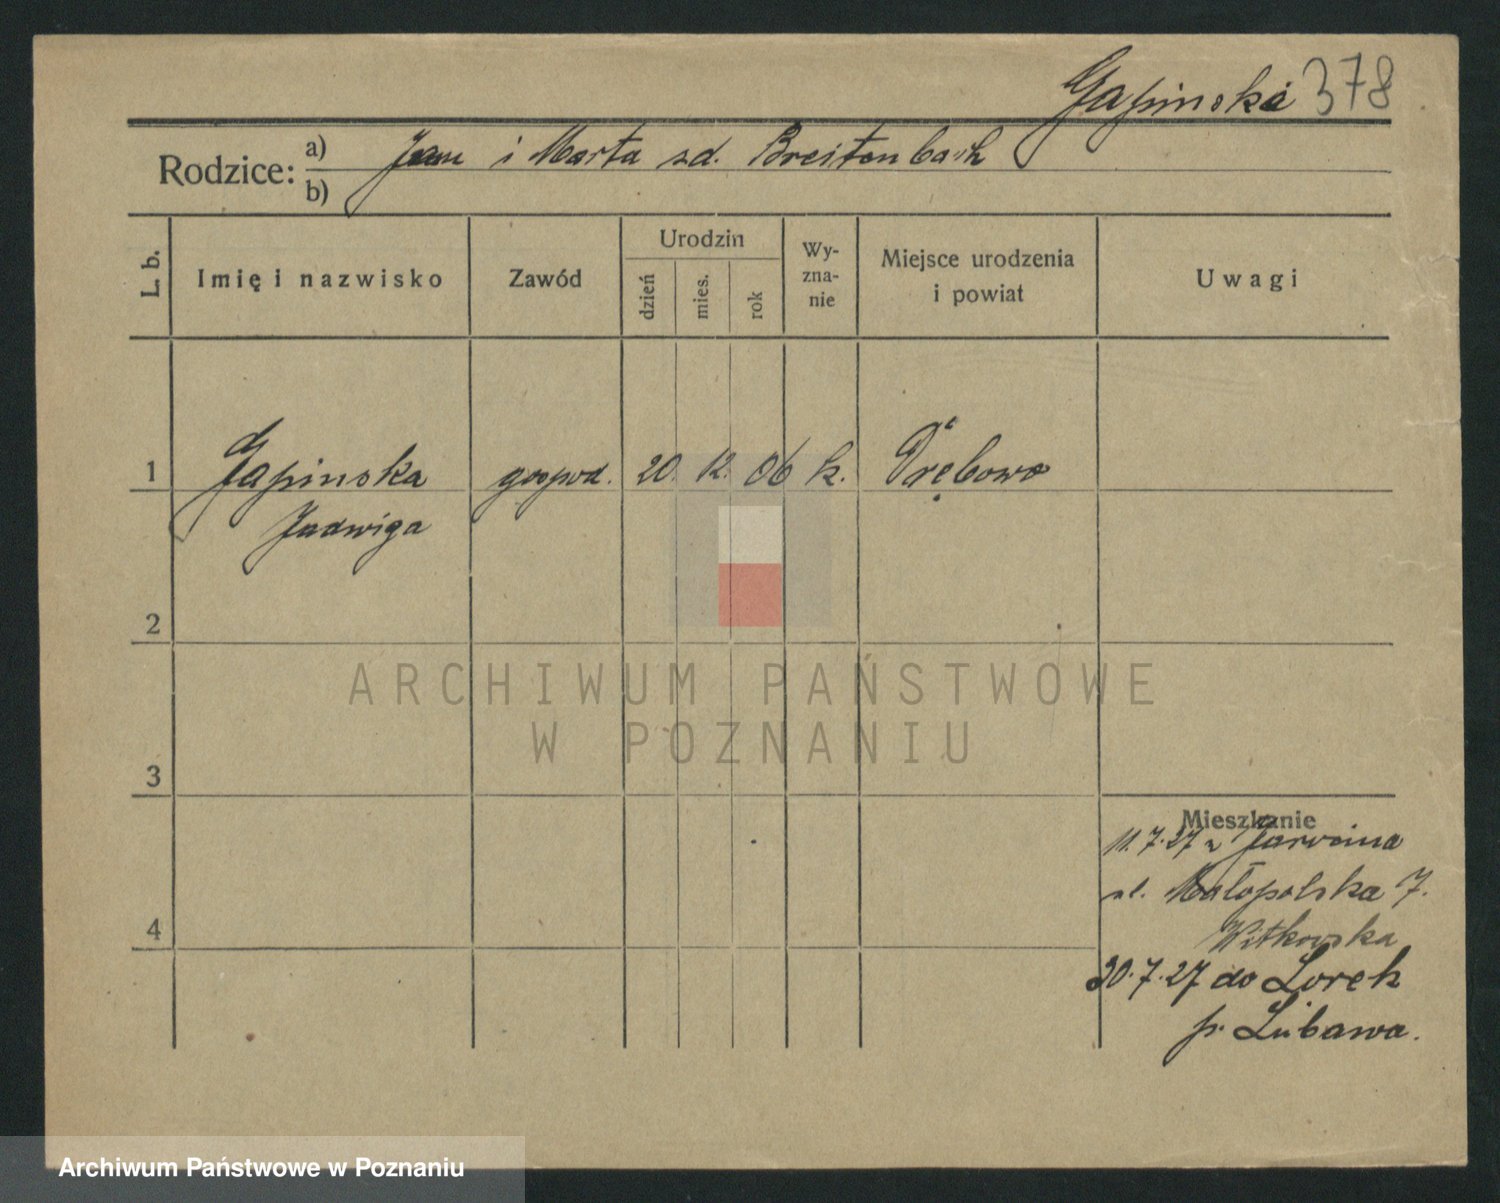 Gapinska 378
Rodzice: a) Jan i Marta zd. Breitenbach
b)
L. b. Imię i nazwisko Zawód Urodzin dzień mies. rok Wy-zna-nie Miejsce urodzenia i powiat Uwagi
1 Gapinska gospod. 20. 12. 06 k.
Jadwiga
2
3
4
Mieszkanie
11.7.27 z Jarocina
ul. Małopolska 7.
Witkowska
30.7.27 do Lorek
p. Lubawa.
ARCHIWUM PAŃSTWOWE
W POZNANIU
Archiwum Państwowe w Poznaniu